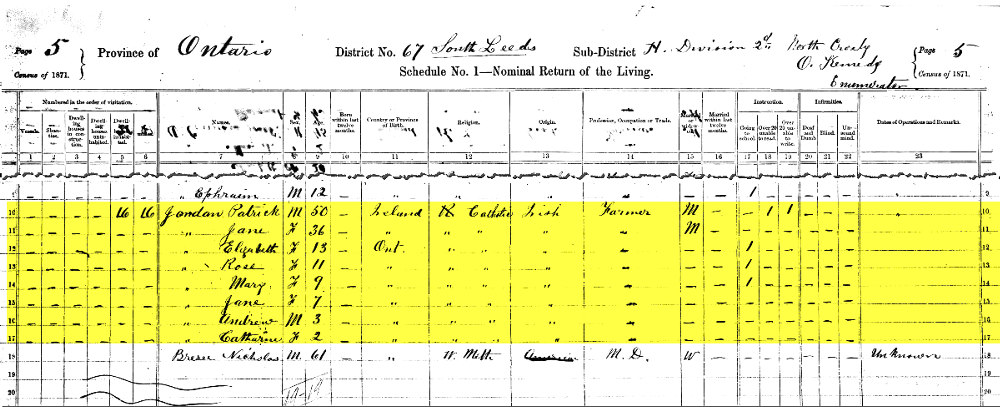 Page 5 Province of Ontario District No. 67 South Leeds Sub-District H. Division 2d. North Crosby Page 5
Census of 1871. Schedule No. 1—Nominal Return of the Living. O. Kennedy Census of 1871.
Enumerator
Numbered in the order of visitation. Names. Sex. Age. Born within last twelve months. Country or Province of Birth. Religion. Origin. Profession, Occupation or Trade. Married within last twelve months. Instruction. Infirmities. Dates of Operations and Remarks.
Vessels. Shanties. Dwelling houses in construction. Dwelling uninhabited. Going to school. Over 20 unable to read. Over 20 unable to write. Deaf and Dumb. Blind. Unsound mind.
1 2 3 4 5 6 7 8 9 10 11 12 13 14 15 16 17 18 19 20 21 22 23
9 " Ephraim M 12 – " " " – – – 1 – – – – – " 9
10 – – – – 16 16 Jondan Patrick M 50 – Ireland R Catholic Irish Farmer M – – 1 1 – – – " 10
11 – – – – – – " Jane F 36 – " " " " – M – – – – – – – 11
12 – – – – – – " Elizabeth F 13 – Ont. " " " – – – 1 – – – – – 12
13 – – – – – – " Rose F 11 – " " " " – – – 1 – – – – – 13
14 – – – – – – " Mary F 9 – " " " " – – – 1 – – – – – 14
15 – – – – – – " Jane F 7 – " " " " – – – – – – – – – 15
16 – – – – – – " Andrew M 3 – " " " " – – – – – – – – – 16
17 – – – – – – " Catharine F 2 – " " " " – – – – – – – – – 17
18 – – – – – – Breese Nicholas M. 61 – " W. Meth America M.D. W – – – – – – – Unknown 18
19 19
20 19-19 20